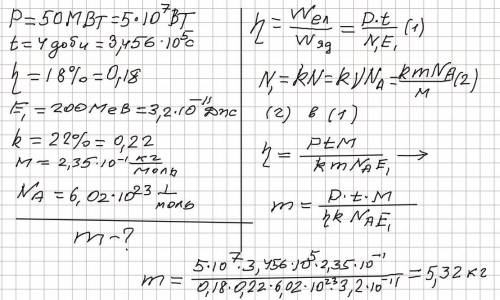 P = 50 МВт = 5·10⁷ Вт
t = 4 доби = 3,456·10⁵ c
η = 18% = 0,18
E₁ = 200 МеВ = 3,2·10⁻¹¹ Дж
k = 22% = 0,22
M = 2,35·10⁻¹ кг/моль
N_A = 6,02·10²³ 1/моль
m - ?
η = Wел/Wяд = P·t/N₁E₁ (1)
N₁ = kN = kνN_A = kmN_A/M (2)
(2) в (1)
η = PtM/kmN_AE₁ →
m = P·t·M/ηkN_AE₁
m = 5·10⁷·3,456·10⁵·2,35·10⁻¹/0,18·0,22·6,02·10²³·3,2·10⁻¹¹ = 5,32 кг